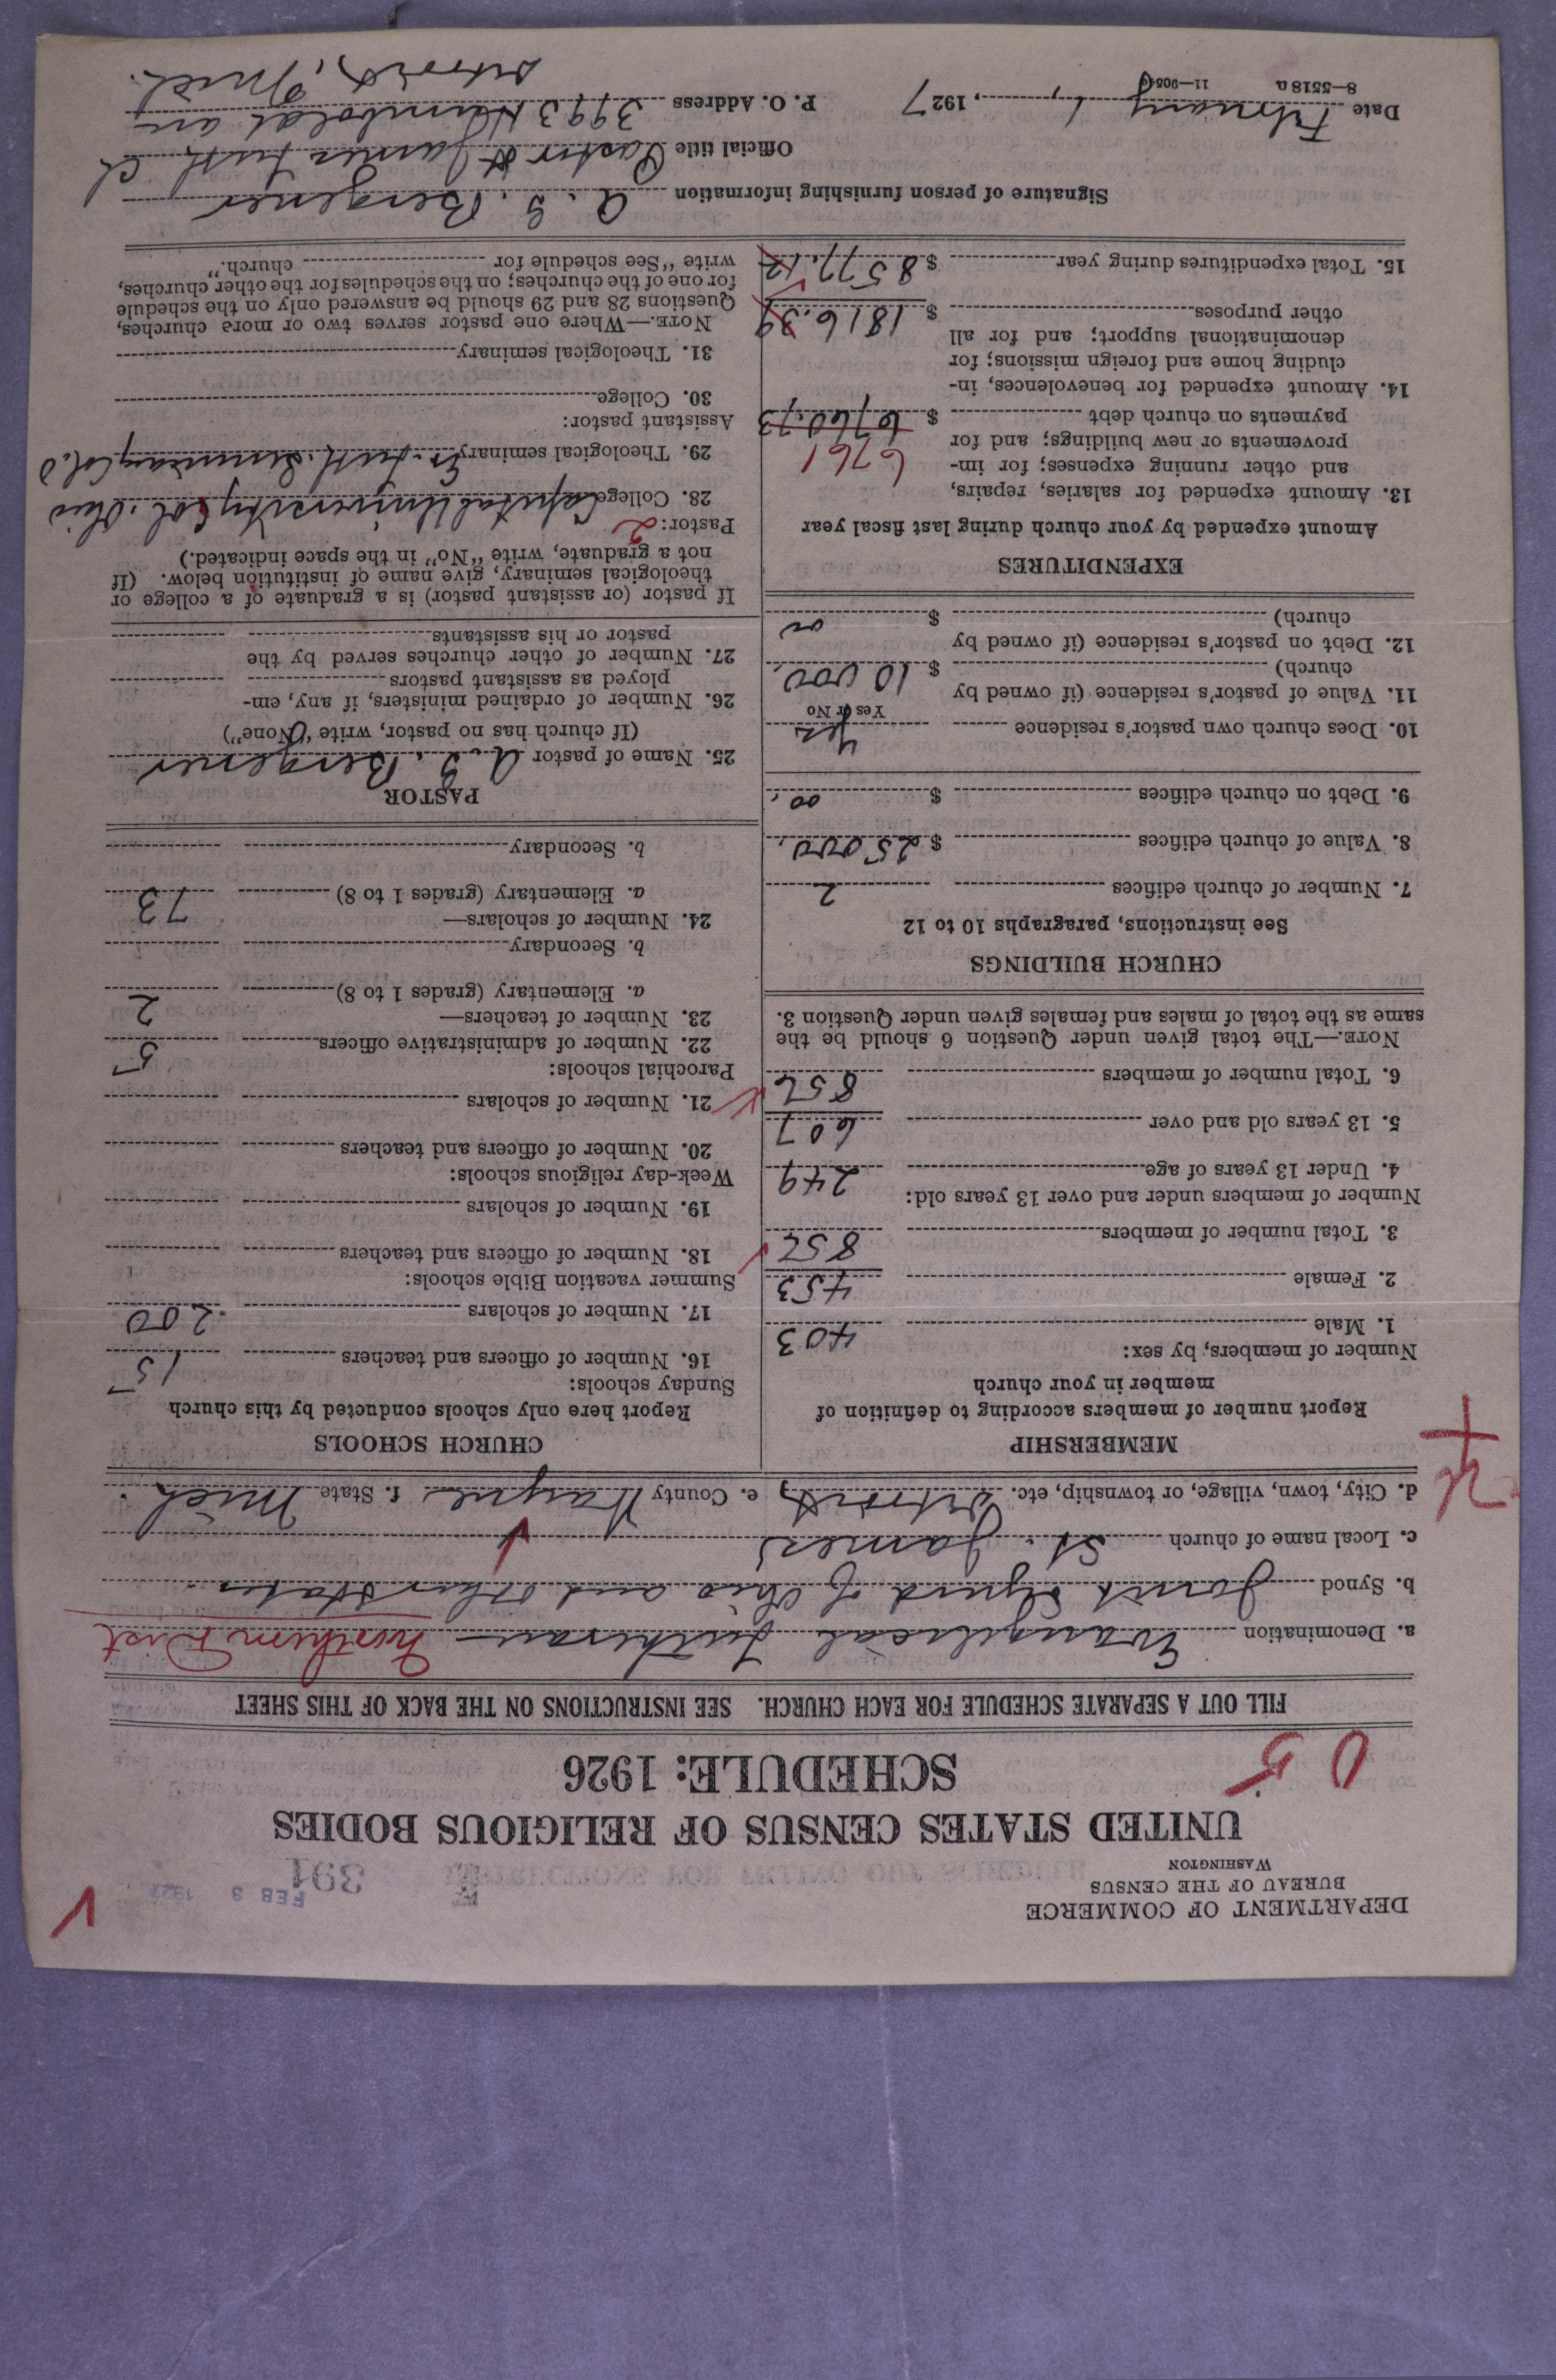 DEPARTMENT OF COMMERCE
BUREAU OF THE CENSUS
WASHINGTON
FEB 3 1927
391
UNITED STATES CENSUS OF RELIGIOUS BODIES
SCHEDULE: 1926
0 5
FILL OUT A SEPARATE SCHEDULE FOR EACH CHURCH. SEE INSTRUCTIONS ON THE BACK OF THIS SHEET
a. Denomination Evangelical Lutheran — Northern Dist
b. Synod Joint Synod of Ohio and Other States
c. Local name of church St. James
d. City, town, village, or township, etc. Detroit, e. County Wayne f. State Mich.
MEMBERSHIP
Report number of members according to definition of
member in your church
Number of members, by sex:
1. Male 403
2. Female 453
3. Total number of members 856
Number of members under and over 13 years old:
4. Under 13 years of age 249
5. 13 years old and over 607
6. Total number of members 856
NOTE.—The total given under Question 6 should be the
same as the total of males and females given under Question 3.
CHURCH BUILDINGS
See instructions, paragraphs 10 to 12
7. Number of church edifices 2
8. Value of church edifices $ 25000.
9. Debt on church edifices $ 00.
10. Does church own pastor's residence Yes
Yes or No
11. Value of pastor's residence (if owned by
church) $ 10000.
12. Debt on pastor's residence (if owned by
church) $ 00
EXPENDITURES
Amount expended by your church during last fiscal year
13. Amount expended for salaries, repairs,
and other running expenses; for im-
provements or new buildings; and for 6761
payments on church debt $ 6760.73
14. Amount expended for benevolences, in-
cluding home and foreign missions; for
denominational support; and for all
other purposes $ 1816.39
15. Total expenditures during year $ 8577.12
CHURCH SCHOOLS
Report here only schools conducted by this church
Sunday schools:
16. Number of officers and teachers 15
17. Number of scholars 200
Summer vacation Bible schools:
18. Number of officers and teachers
19. Number of scholars
Week-day religious schools:
20. Number of officers and teachers
21. Number of scholars
Parochial schools:
22. Number of administrative officers 5
23. Number of teachers—
a. Elementary (grades 1 to 8) 2
b. Secondary
24. Number of scholars—
a. Elementary (grades 1 to 8) 73
b. Secondary
PASTOR
25. Name of pastor A. G. Bergener
(If church has no pastor, write "None")
26. Number of ordained ministers, if any, em-
ployed as assistant pastors
27. Number of other churches served by the
pastor or his assistants
If pastor (or assistant pastor) is a graduate of a college or
theological seminary, give name of institution below. (If
not a graduate, write "No" in the space indicated.)
Pastor: 2
28. College Capital University Col. Ohio
29. Theological seminary Ev. Luth. Seminary Col. O
Assistant pastor:
30. College
31. Theological seminary
NOTE.—Where one pastor serves two or more churches,
Questions 28 and 29 should be answered only on the schedule
for one of the churches; on the schedules for the other churches,
write "See schedule for church."
Signature of person furnishing information A. G. Bergener
Official title Pastor St James Luth. Ch
Date February 1, 1927 P. O. Address 3993 Humboldt av
8—5518 a Detroit, Mich.